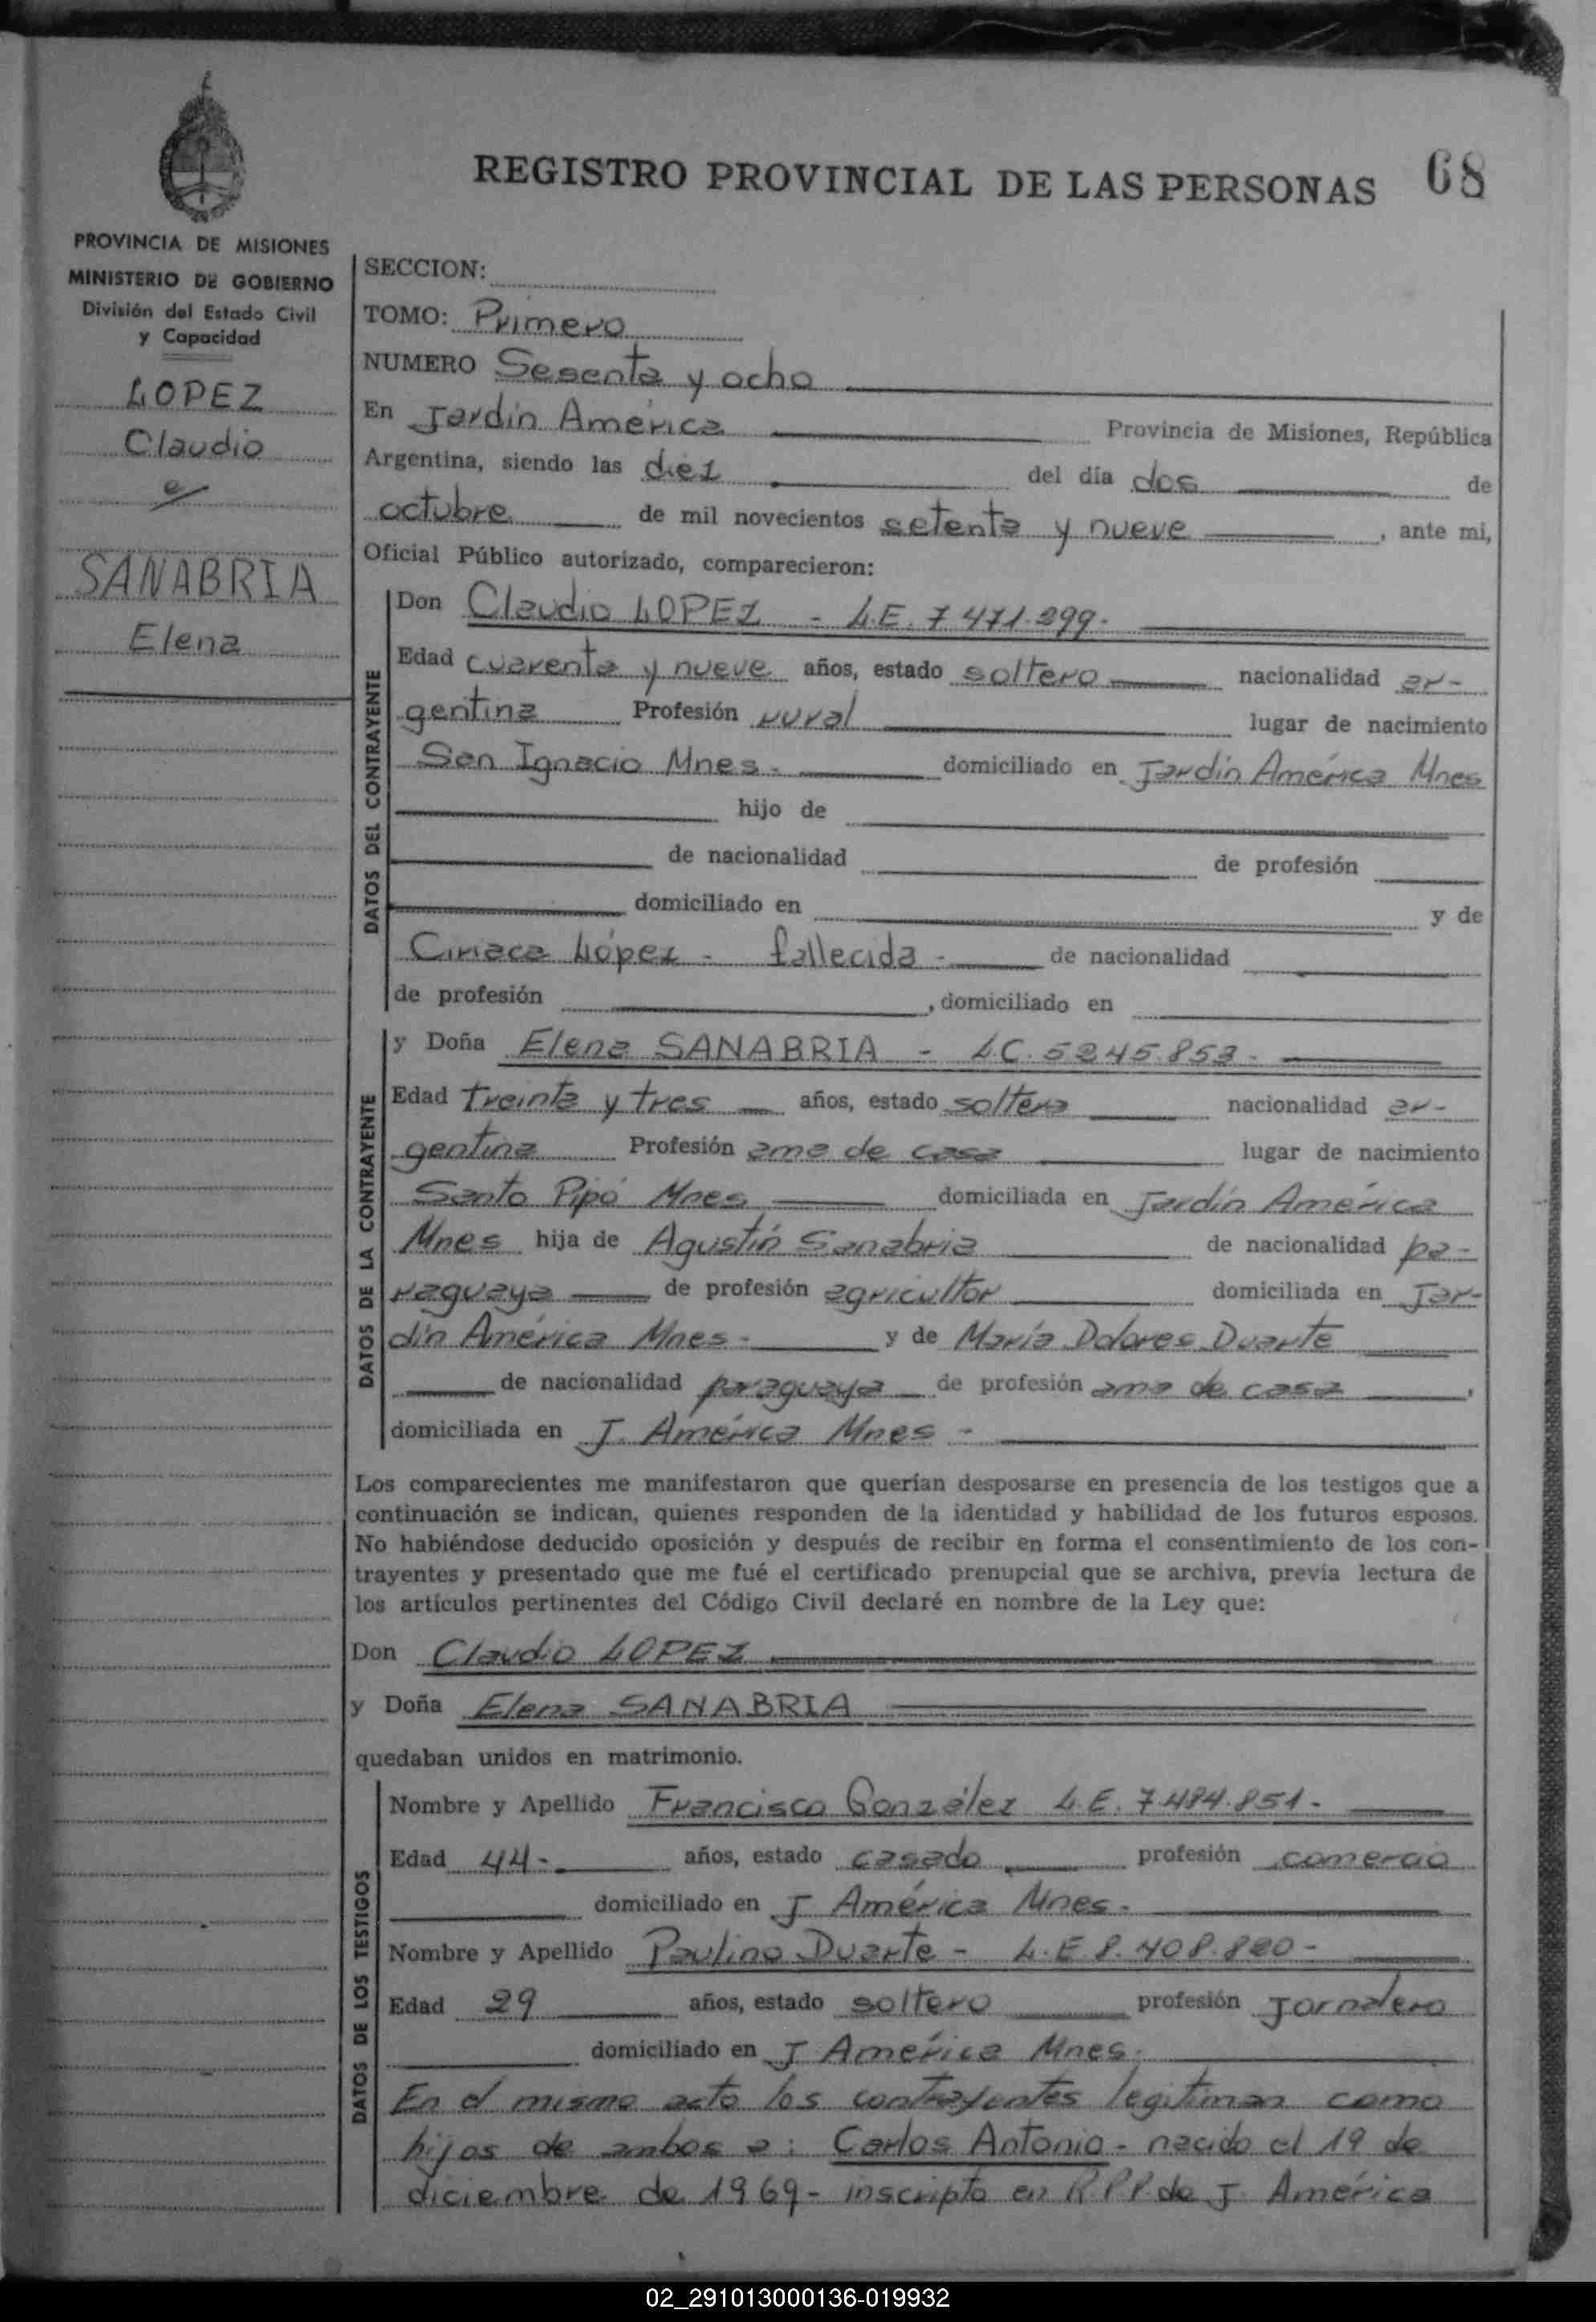 REGISTRO PROVINCIAL DE LAS PERSONAS 68
PROVINCIA DE MISIONES
MINISTERIO DE GOBIERNO
División del Estado Civil
y Capacidad
LOPEZ
Claudio
e/
SANABRIA
Elena
SECCION:
TOMO: Primero
NUMERO Sesenta y ocho
En Jardín América Provincia de Misiones, República
Argentina, siendo las diez del día dos de
octubre de mil novecientos setenta y nueve, ante mi,
Oficial Público autorizado, comparecieron:
DATOS DEL CONTRAYENTE
Don Claudio LOPEZ - L.E. 7 471.299.
Edad cuarenta y nueve años, estado soltero nacionalidad ar-
gentina Profesión rural lugar de nacimiento
San Ignacio Mnes. domiciliado en Jardín América Mnes
hijo de
de nacionalidad de profesión
domiciliado en y de
Ciriaca López - fallecida - de nacionalidad
de profesión , domiciliado en
DATOS DE LA CONTRAYENTE
y Doña Elena SANABRIA - L.C. 5245.853.
Edad treinta y tres años, estado soltera nacionalidad ar-
gentina Profesión ama de casa lugar de nacimiento
Santo Pipó Mnes domiciliada en Jardín América
Mnes hija de Agustín Sanabria de nacionalidad pa-
raguaya de profesión agricultor domiciliada en Jar-
dín América Mnes. y de María Dolores Duarte
de nacionalidad paraguaya de profesión ama de casa ,
domiciliada en J. América Mnes -
Los comparecientes me manifestaron que querían desposarse en presencia de los testigos que a
continuación se indican, quienes responden de la identidad y habilidad de los futuros esposos.
No habiéndose deducido oposición y después de recibir en forma el consentimiento de los con-
trayentes y presentado que me fué el certificado prenupcial que se archiva, previa lectura de
los artículos pertinentes del Código Civil declaré en nombre de la Ley que:
Don Claudio LOPEZ
y Doña Elena SANABRIA
quedaban unidos en matrimonio.
DATOS DE LOS TESTIGOS
Nombre y Apellido Francisco González L.E. 7.484.851.
Edad 44- años, estado casado profesión comercio
domiciliado en J América Mnes.
Nombre y Apellido Paulino Duarte - L.E 8.408.820-
Edad 29 años, estado soltero profesión Jornalero
domiciliado en J América Mnes.
En el mismo acto los contrayentes legitiman como
hijos de ambos a: Carlos Antonio - nacido el 19 de
diciembre de 1969- inscripto en R.P.P de J. América
02_291013000136-019932